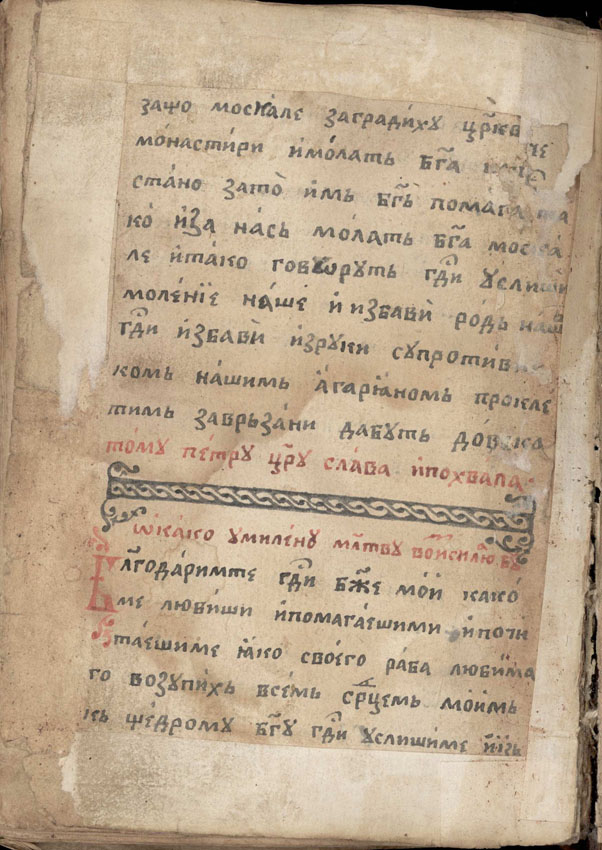 защо москале заградиху цр҃кв
монастири имолать бг҃а
стано зато имь бг҃ь помага та
ко иза нась молать бг҃а моска
ле итако говѡруть гд҃и услиши
моленїе наше и избави родь наш
гд҃и избави изруки супротив
комь нашимь агарїаномь прокле
тимь заврьзани дабуть довека
тому петру цр҃у слава ипохвала
ѡ како умилену мл҃тву
Благодаримте гд҃и бж҃е мои како
ме любиши ипомагаешими ипочи
таешиме ꙗко своего раба любима
го возупихь всемь ср҃цемь моимь
кь щедрому бг҃у гд҃и услишиме